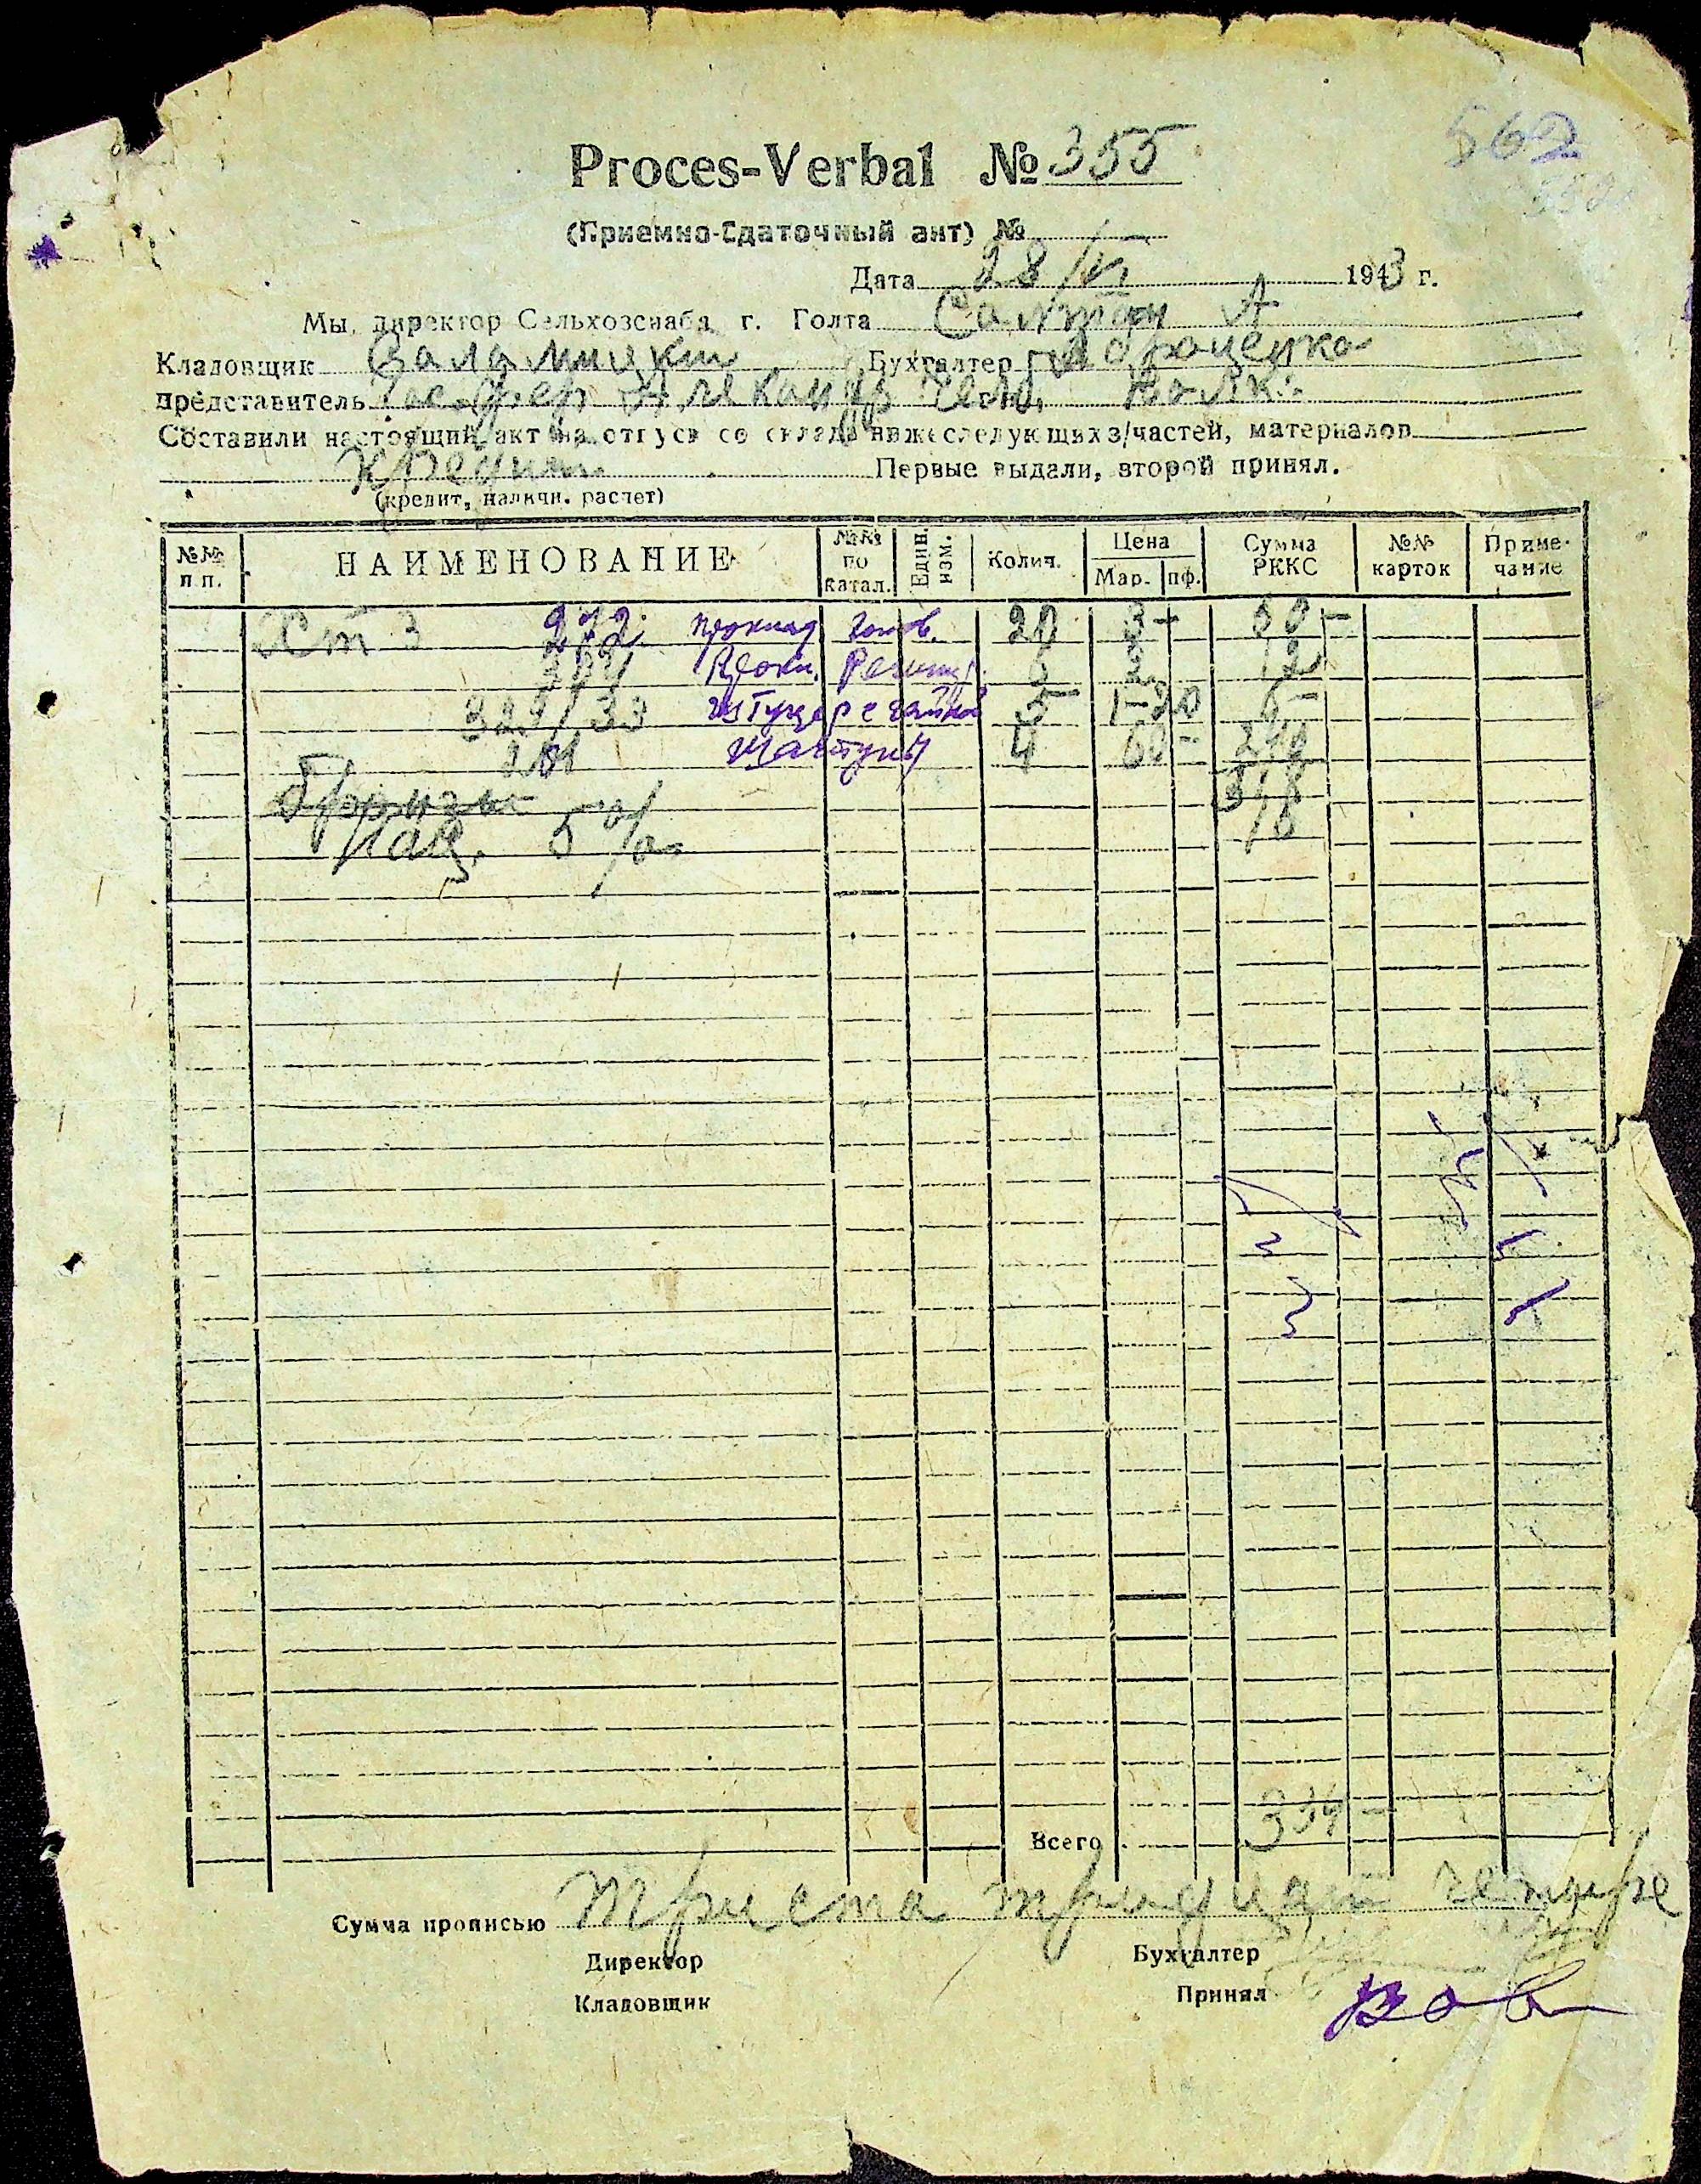 562
Proces-Verbal № 355
(Приемно-Сдаточный акт) №
Дата 28/VI 1943 г.
Мы, директор Сельхозснаба г. Голта А
Кладовщик Бухгалтер
представитель Александр
Составили настоящий акт на отгуск со склада нижеследующих з/частей, материалов
Кредит Первые выдали, второй принял.
(кредит, наличн. расчет)
№№ п п. НАИМЕНОВАНИЕ №№ по катал. Един. изм. Колич. Цена Мар. пф. Сумма РККС №№ карток Приме-чание
Хт 3 272 проклад голов. 20 3- 60-
Прокл. 6 2 12
329/33 штуцер с гайкой 5 1-20 6-
201 Шатуны 4 60- 240
318
Нац. 5% 16
Всего 334-
Сумма прописью триста тридцат четыре
Директор Бухгалтер
Кладовщик Принял